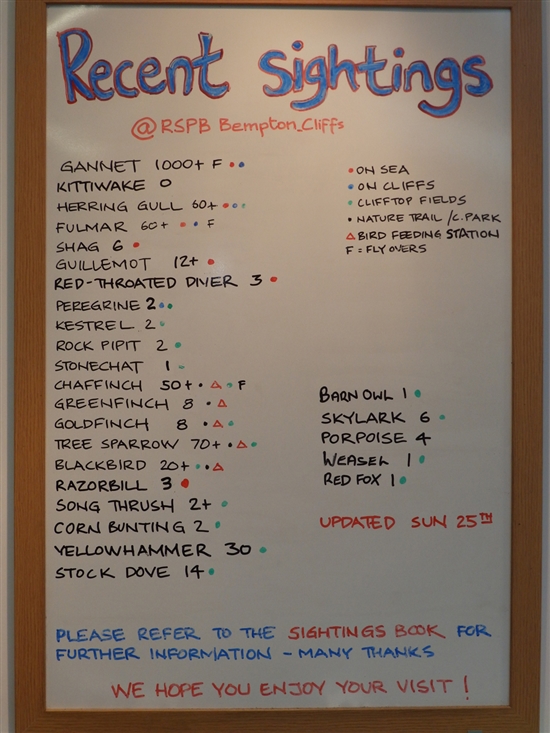 Recent Sightings
@RSPB Bempton_Cliffs
GANNET 1000+ F
KITTIWAKE 0
HERRING GULL 60+
FULMAR 60+ F
SHAG 6
GUILLEMOT 12+
RED-THROATED DIVER 3
PEREGRINE 2
KESTREL 2
ROCK PIPIT 2
STONECHAT 1
CHAFFINCH 50+ • △ F
GREENFINCH 8 • △
GOLDFINCH 8 • △
TREE SPARROW 70+ • △
BLACKBIRD 20+ • △
RAZORBILL 3
SONG THRUSH 2+
CORN BUNTING 2
YELLOWHAMMER 30
STOCK DOVE 14
• ON SEA
• ON CLIFFS
• CLIFFTOP FIELDS
• NATURE TRAIL /C.PARK
△ BIRD FEEDING STATION
F = FLY OVERS
BARN OWL 1
SKYLARK 6
PORPOISE 4
WEASEL 1
RED FOX 1
UPDATED SUN 25TH
PLEASE REFER TO THE SIGHTINGS BOOK FOR
FURTHER INFORMATION - MANY THANKS
WE HOPE YOU ENJOY YOUR VISIT !